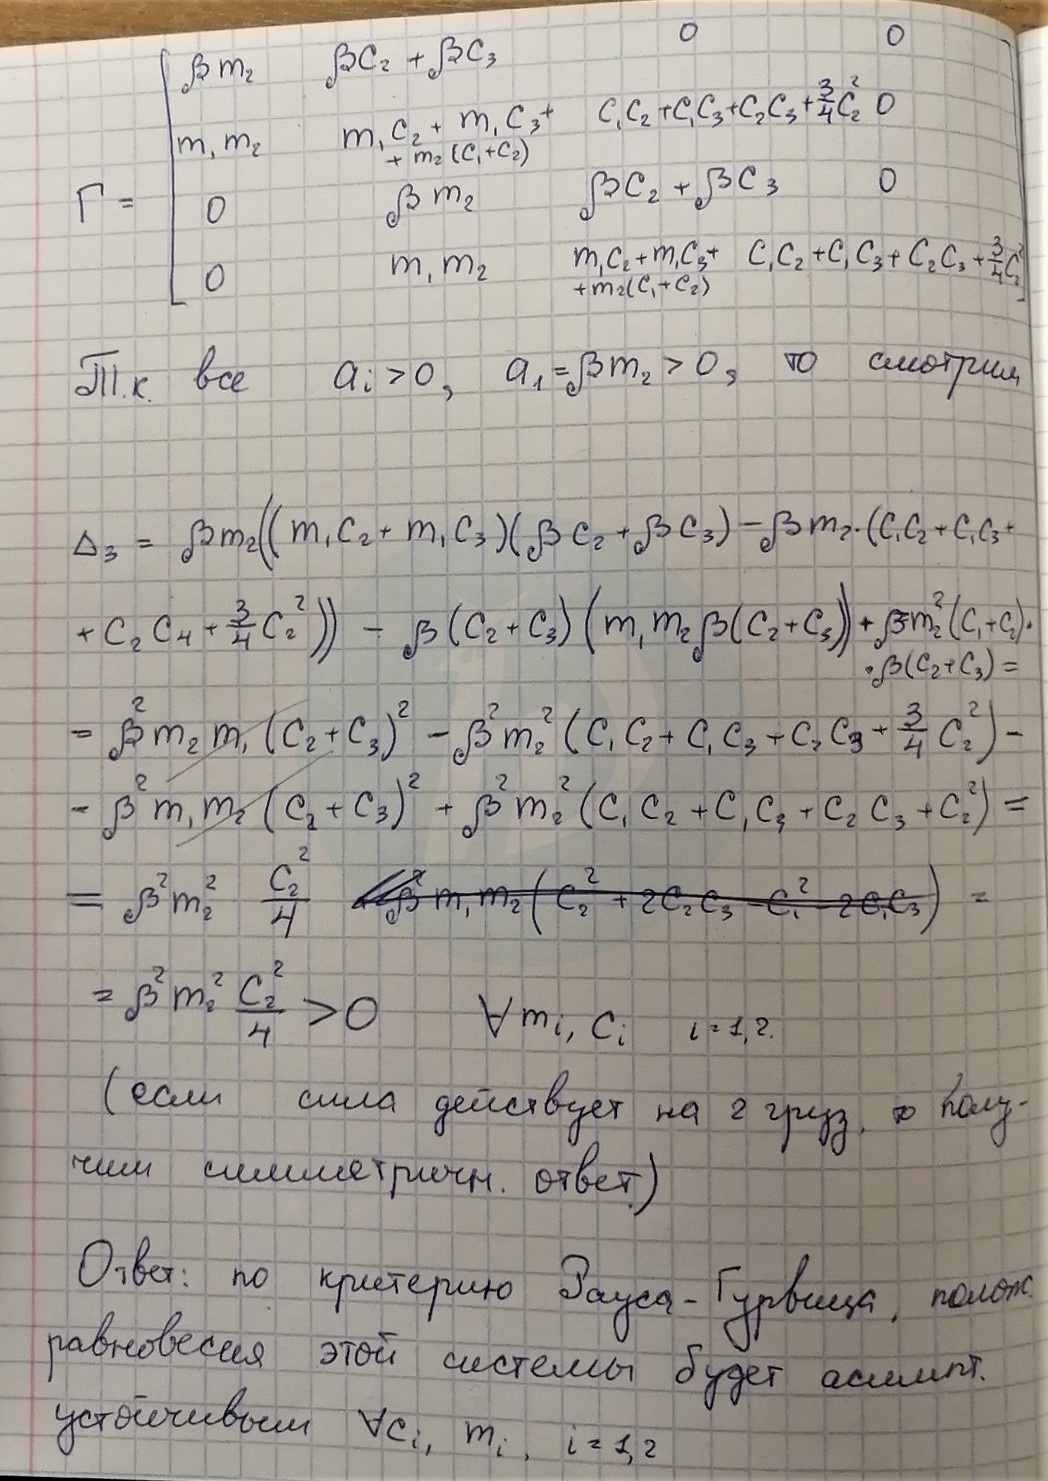 Γ = [ βm₂ βC₂ + βC₃ 0 0
m₁m₂ m₁C₂ + m₁C₃ + + m₂(C₁+C₂) C₁C₂+C₁C₃+C₂C₃+3/4C₂² 0
0 βm₂ βC₂ + βC₃ 0
0 m₁m₂ m₁C₂+m₁C₃+ +m₂(C₁+C₂) C₁C₂+C₁C₃+C₂C₃+3/4C₂² ]
Т.к. все aᵢ>0, a₁=βm₂>0, то смотрим
Δ₃ = βm₂((m₁C₂+m₁C₃)(βC₂+βC₃)-βm₂·(C₁C₂+C₁C₃+
+C₂C₄+3/4C₂²)) - β(C₂+C₃)(m₁m₂β(C₂+C₃))+βm₂²(C₁+C₂)·
·β(C₂+C₃) =
= β²m₂m₁(C₂+C₃)² - β²m₂²(C₁C₂+C₁C₃+C₂C₃+3/4C₂²)-
- β²m₁m₂(C₂+C₃)² + β²m₂²(C₁C₂+C₁C₃+C₂C₃+C₂²) =
= β²m₂² C₂²/4 β²m₁m₂(C₂²+2C₂C₃-C₁²-2C₁C₃) =
= β²m₂² C₂²/4 >0 ∀mᵢ, cᵢ i=1,2.
(если сила действует на 2 груз, то полу-
чим симметричн. ответ.)
Ответ: по критерию Рауса-Гурвица, полож.
равновесия этой системы будет асимпт.
устойчивым ∀cᵢ, mᵢ, i=1,2